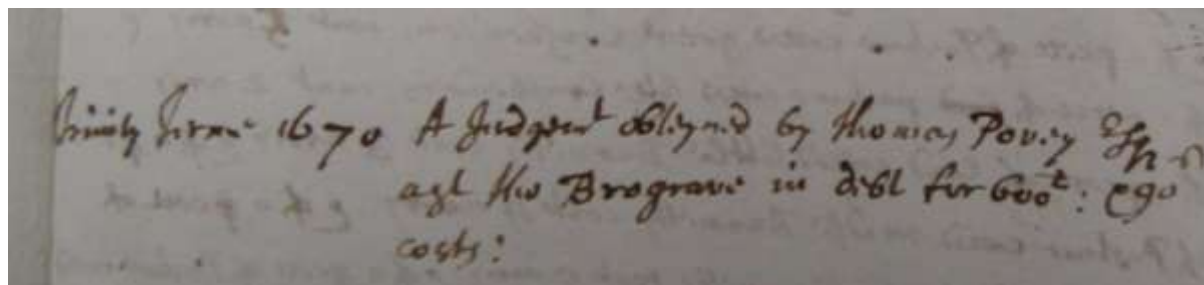 Trinity Terme 1670 A Judgemt obteyned by Thomas Povey Esqr
agt Tho Brograve in debt for 600l:
costs: